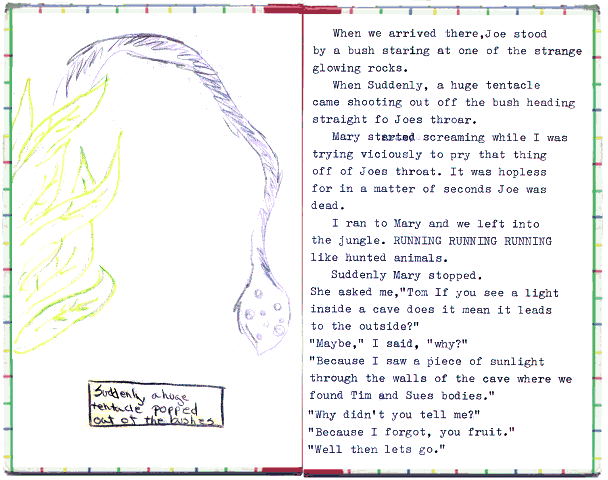 Suddenly a huge
tentacle popped
out of the bushes
When we arrived there,Joe stood
by a bush staring at one of the strange
glowing rocks.
When Suddenly, a huge tentacle
came shooting out off the bush heading
straight fo Joes throar.
Mary started screaming while I was
trying viciously to pry that thing
off of Joes throat. It was hopless
for in a matter of seconds Joe was
dead.
I ran to Mary and we left into
the jungle. RUNNING RUNNING RUNNING
like hunted animals.
Suddenly Mary stopped.
She asked me,"Tom If you see a light
inside a cave does it mean it leads
to the outside?"
"Maybe," I said, "why?"
"Because I saw a piece of sunlight
through the walls of the cave where we
found Tim and Sues bodies."
"Why didn't you tell me?"
"Because I forgot, you fruit."
"Well then lets go."